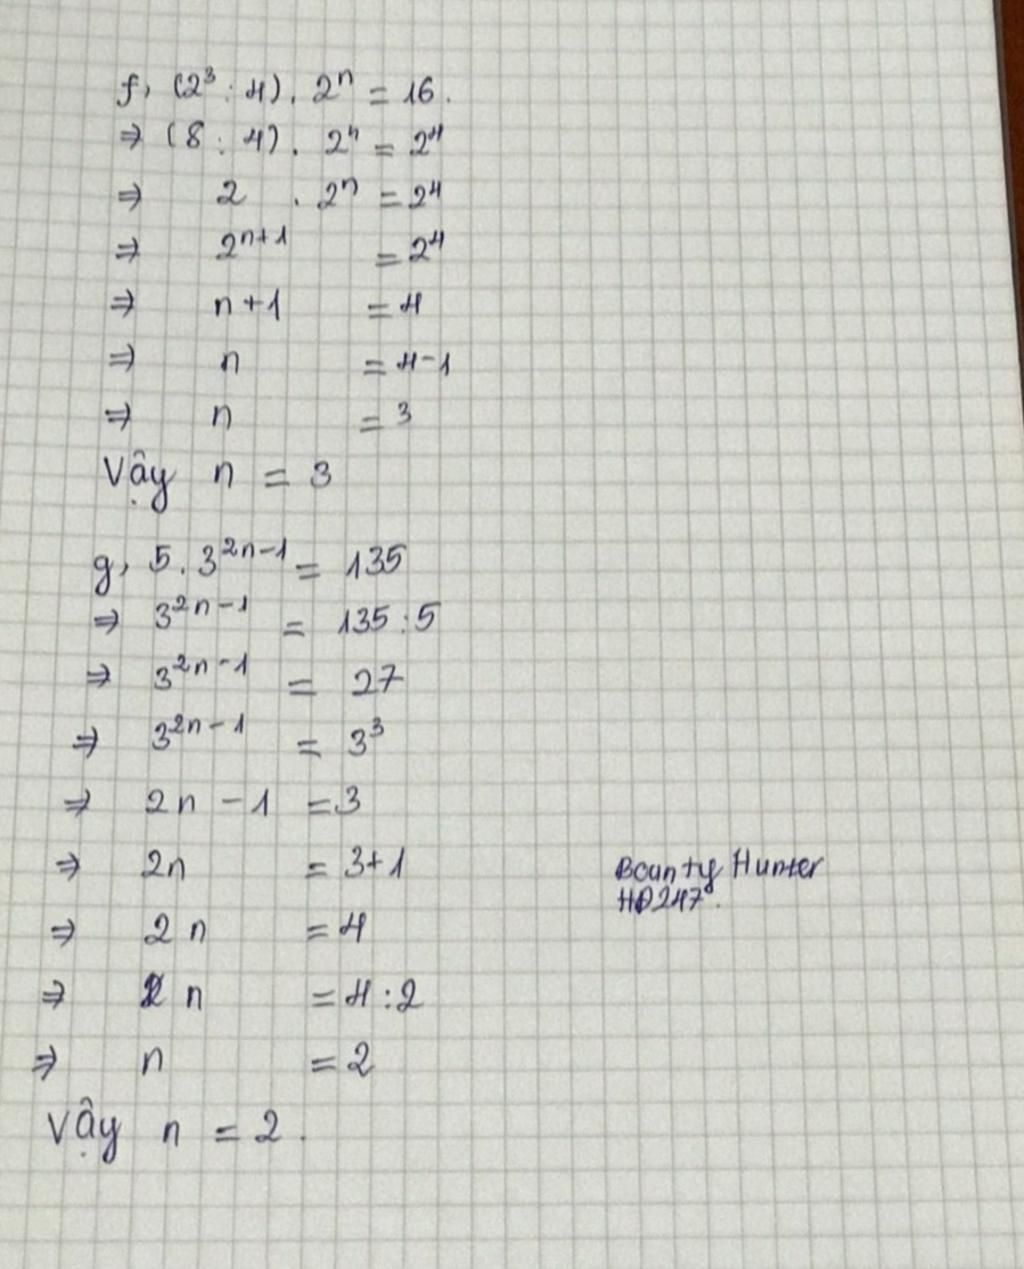 f, (2³ : 4) . 2ⁿ = 16.
⇒ (8 : 4) . 2ⁿ = 2⁴
⇒ 2 . 2ⁿ = 2⁴
⇒ 2ⁿ⁺¹ = 2⁴
⇒ n + 1 = 4
⇒ n = 4 - 1
⇒ n = 3
Vậy n = 3
g, 5 . 3²ⁿ⁻¹ = 135
⇒ 3²ⁿ⁻¹ = 135 : 5
⇒ 3²ⁿ⁻¹ = 27
⇒ 3²ⁿ⁻¹ = 3³
⇒ 2n - 1 = 3
⇒ 2n = 3 + 1
⇒ 2n = 4
⇒ n = 4 : 2
⇒ n = 2
Vậy n = 2.
Bounty Hunter
HD247.